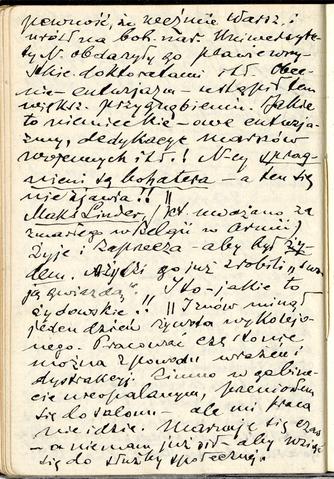 pewność, że weźmie Warsz. i
wróci na boh. nar. Uniwersyte-
ty N. obdarzyły go
doktoratami itd. Obec-
nie – entuzjazm – ustąpił tem
większ. przygnębieniu. Jakie
to niemieckie – owe entuzja-
zmy, dedykacje marszów
wojennych itd.! N-cy sprag-
nieni są bohatera – a ten się
nie zjawia!! ||
Maks Linder, jest uważany za
zmarłego w Belgii w Armii,
Żyje i zaprzecza – aby był ży-
dem. Żydki go już zrobili „swo-
ją gwiazdą”. I to – jakie to
żydowskie!! || Znów minął
jeden dzień żywota wykoleje-
nego. Pracować czę stonie
można z powodu wrażeń i
dystrakcyj. Zimno w gabine-
cie nieopalanym, przeniosłem
się do salonu – ale mi praca
nie idzie. Marnuję się czas
– a nie mam już sił aby wziąć
się do służby społecznej.